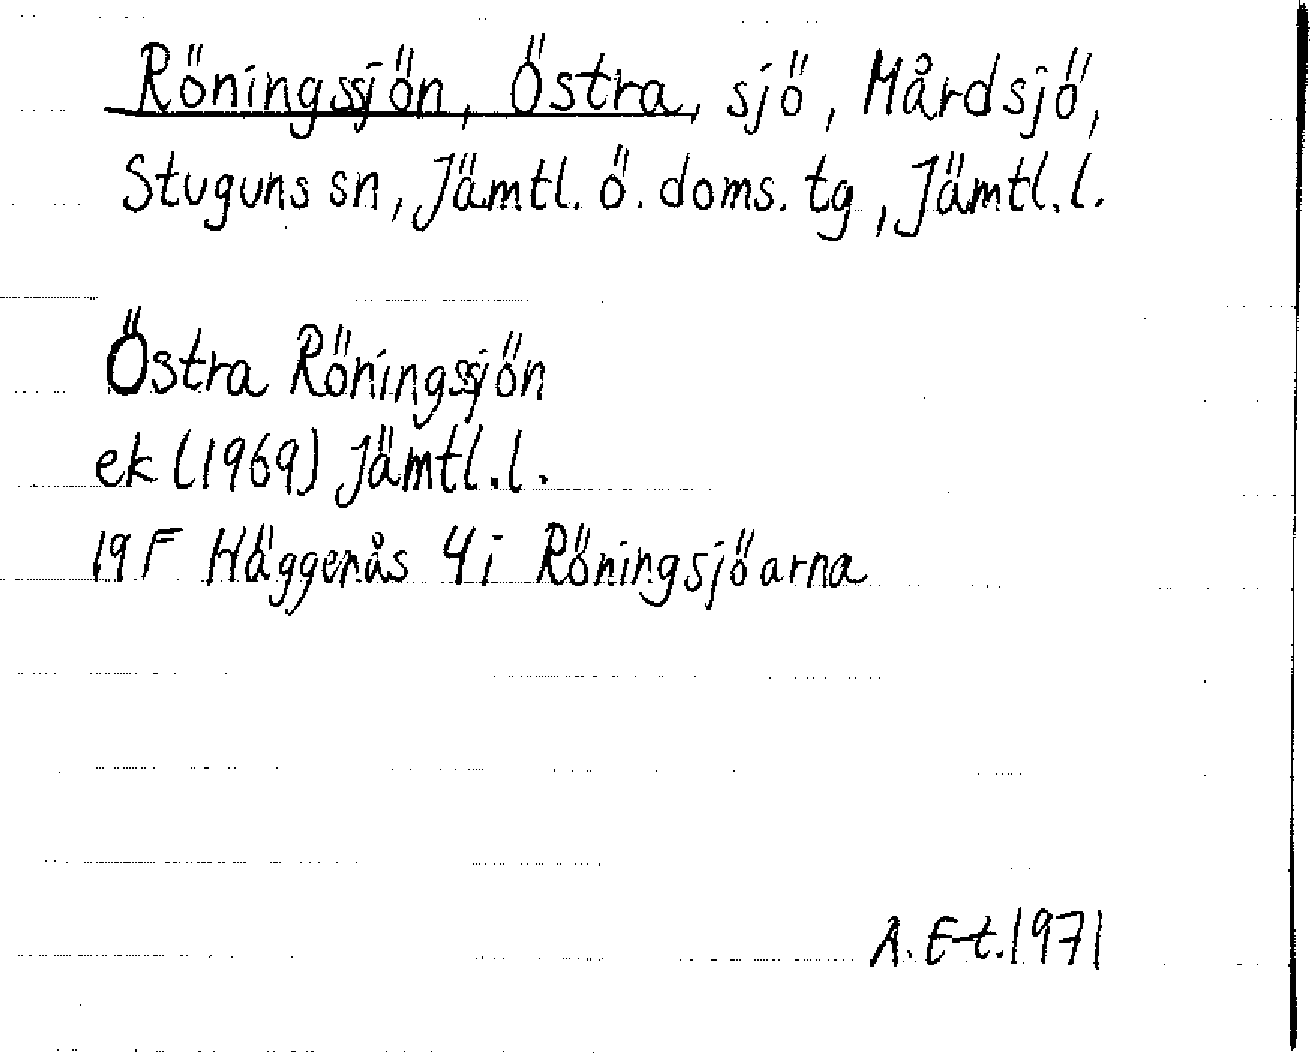 Röningssjön, Östra, sjö, Mårdsjö,
Stuguns sn, Jämtl. ö. doms. tg, Jämtl. l.
Östra Röningssjön
ek (1969) Jämtl. l.
19 F Häggenås 4 i Röningsjöarna
A. E-t. 1971